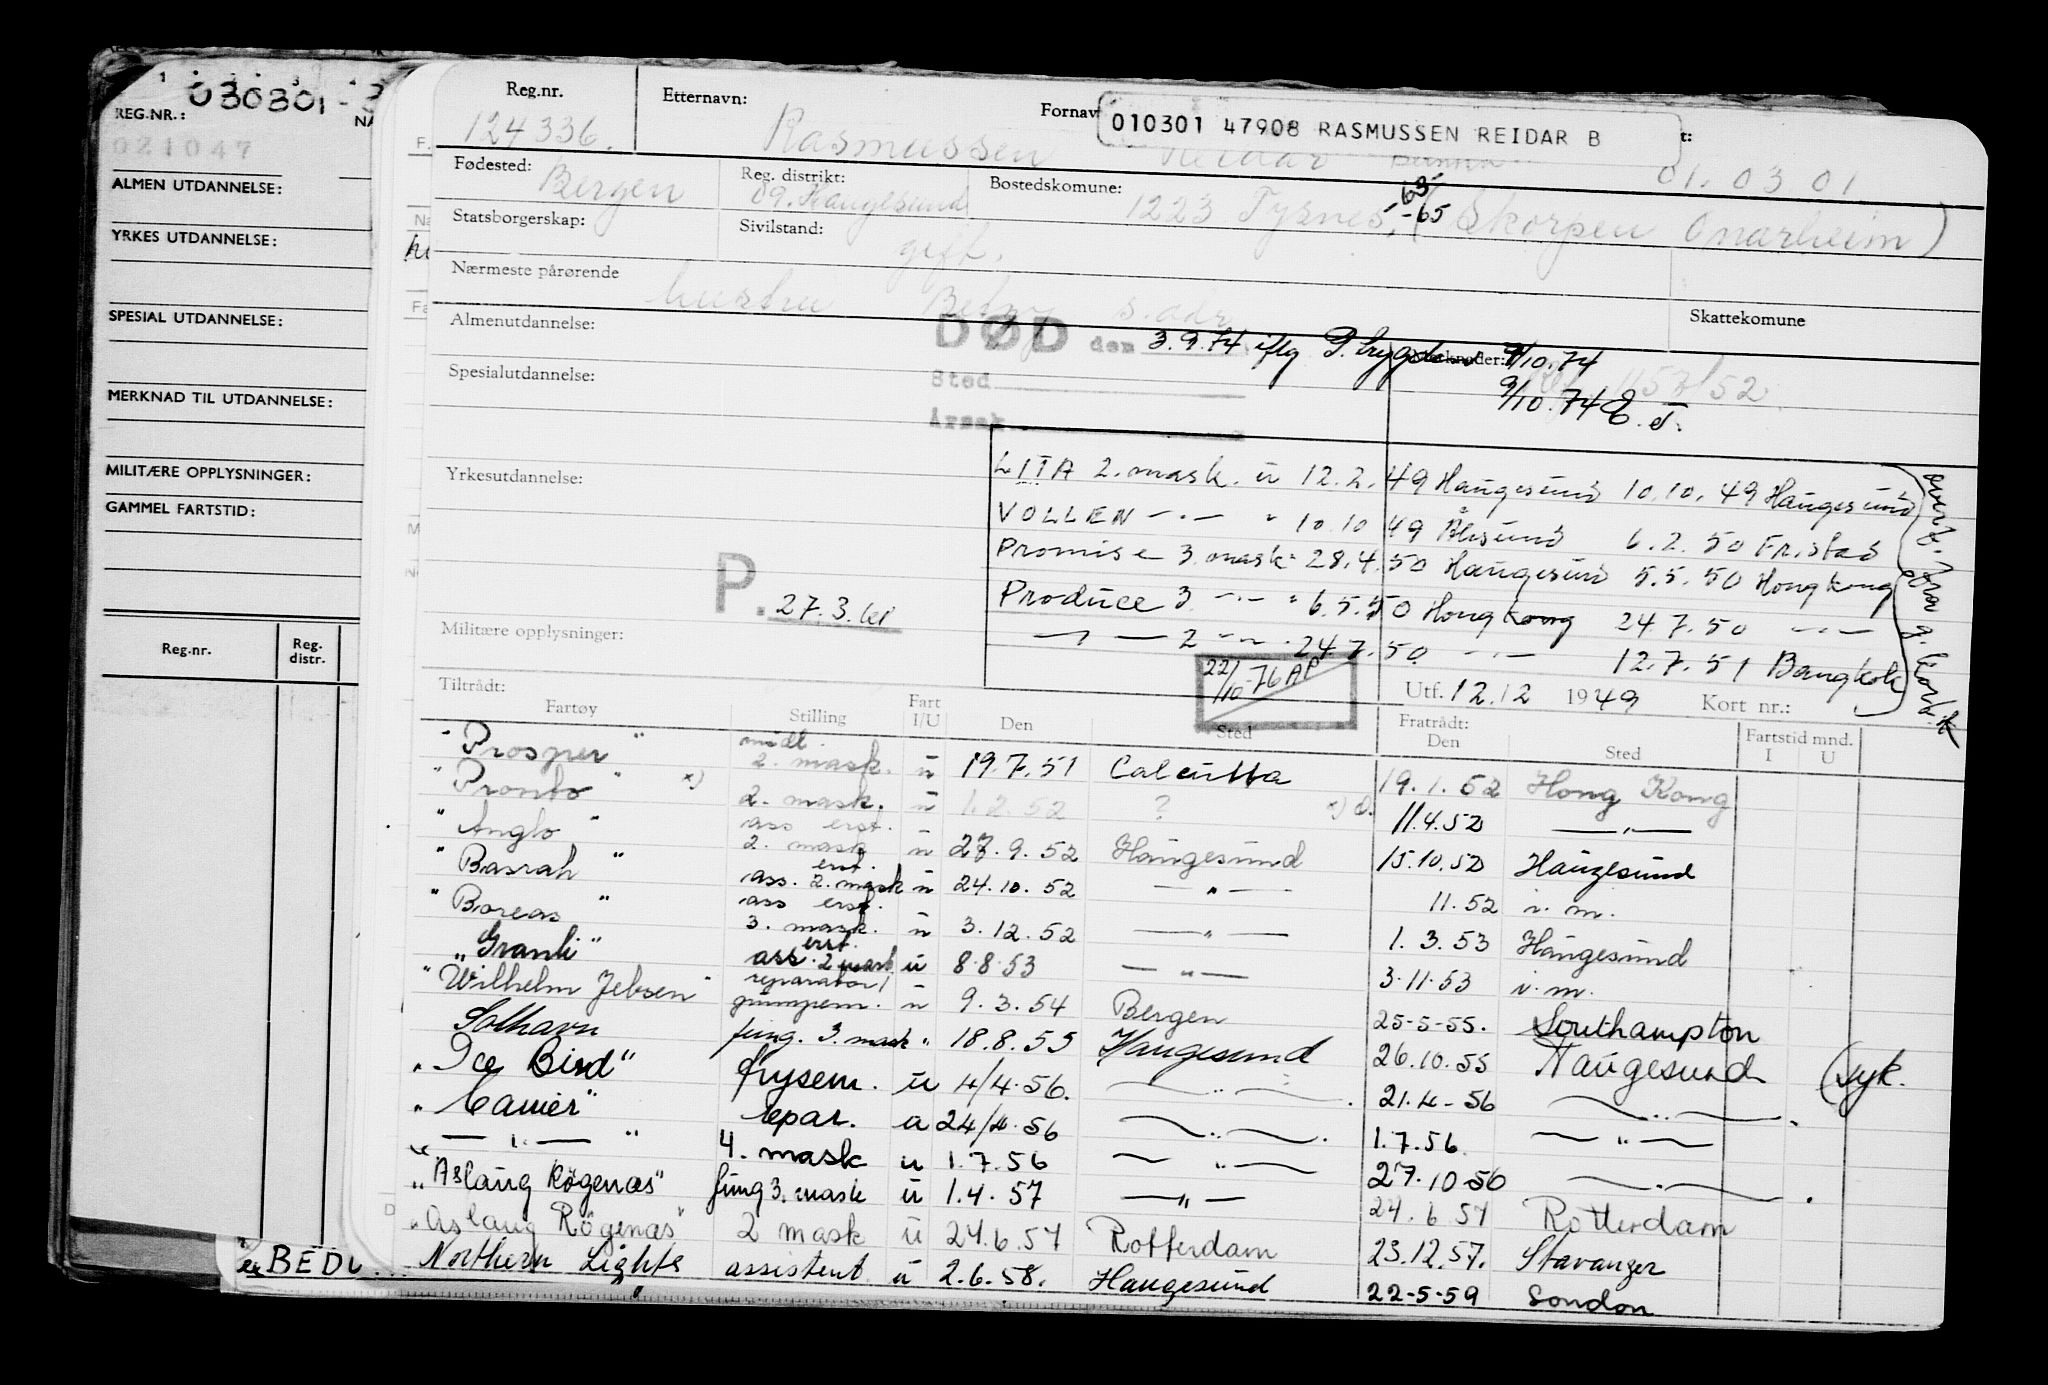 REG.NR.: 030301 -
021047
ALMEN UTDANNELSE:
YRKES UTDANNELSE:
SPESIAL UTDANNELSE:
MERKNAD TIL UTDANNELSE:
MILITÆRE OPPLYSNINGER:
GAMMEL FARTSTID:
Reg.nr. Reg. distr.
Reg.nr. Etternavn: Fornav
124336. Rasmussen Reidar 01.03 01
010301 47908 RASMUSSEN REIDAR B
Fødested: Bergen Reg. distrikt: 09. Haugesund Bostedskomune: 1223 Tysnes, (Skorpen Onarheim)
63-
-65
Statsborgerskap: Sivilstand: gift.
Nærmeste pårørende hustru Betzy s. adr
Skattekomune
Almenutdannelse:
DØD den 3.9.74 iflg 9/10.74
Sted
9/10.74
Årsak
Spesialutdannelse:
Yrkesutdannelse:
LITA 2. mask. u 12.2.49 Haugesund 10.10.49 Haugesund
VOLLEN -"- " 10.10 49 Ålesund 6.2.50 Fr.stad
Promise 3. mask " 28.4.50 Haugesund 5.5.50 Hongkong
Produce 3. -"- " 6.5.50 Hongkong 24.7.50 -"-
-"- 2 -"- " 24.7.50 -"- 12.7.51 Bangkok
P. 27.3.61
Militære opplysninger:
22/10-76 AP
Utf. 12.12 1949 Kort nr.:
Tiltrådt: Fratrådt:
Fartøy Stilling Fart I/U Den Sted Den Sted Fartstid mnd. I U
"Prosper" midl. 2. mask. u 19.7.51 Calcutta 19.1.52 Hong Kong
"Pronto" x) 2. mask. u 1.2.52 ? x) 11.4.52 -"-
"Anglo" ass erst. 2. mask u 27.9.52 Haugesund 15.10.52 Haugesund
"Basrah" erst. ass. 2. mask u 24.10.52 -"- 11.52 i. m.
"Boreas" ass erst. 3. mask. u 3.12.52 -"- 1.3.53 Haugesund
"Granli" erst. ass. 2 mask u 8.8.53 -"- 3.11.53 i. m.
"Wilhelm Jebsen" reparatør/ pumpem. u 9.3.54 Bergen 25-5-55. Southampton
Solhavn fung. 3. mask " 18.8.55 Haugesund 26.10.55 Haugesund (syk.
"Ice Bird" frysem. u 4/4.56. -"- 21.4-56 -"-
repar. u 24/4.56 -"- 1.7.56. -"-
-"- 4. mask u 1.7.56 -"- 27.10 56 -"-
"Aslaug Rögenæs" fung 3. mask u 1.4.57 -"- 24.6 57 Rotterdam
"Aslaug Rögenæs" 2 mask u 24.6.57 Rotterdam 23.12.57. Stavanger
Northern Lights assistent u 2.6.58. Haugesund 22-5-59 London